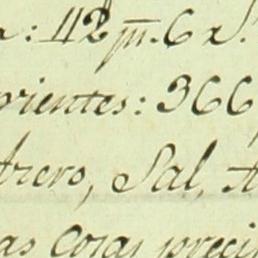 : 112 m. 6 r.
rientes: 366
trero, Sal, A
as Cosas preci